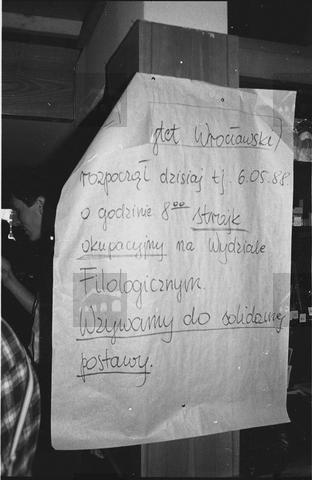 Wrocławski)
rozpoczął dzisiaj tj. 6.05.88
o godzinie 8⁰⁰ strajk
okupacyjny na Wydziale
Filologicznym.
Wzywamy do solidarnej
postawy.